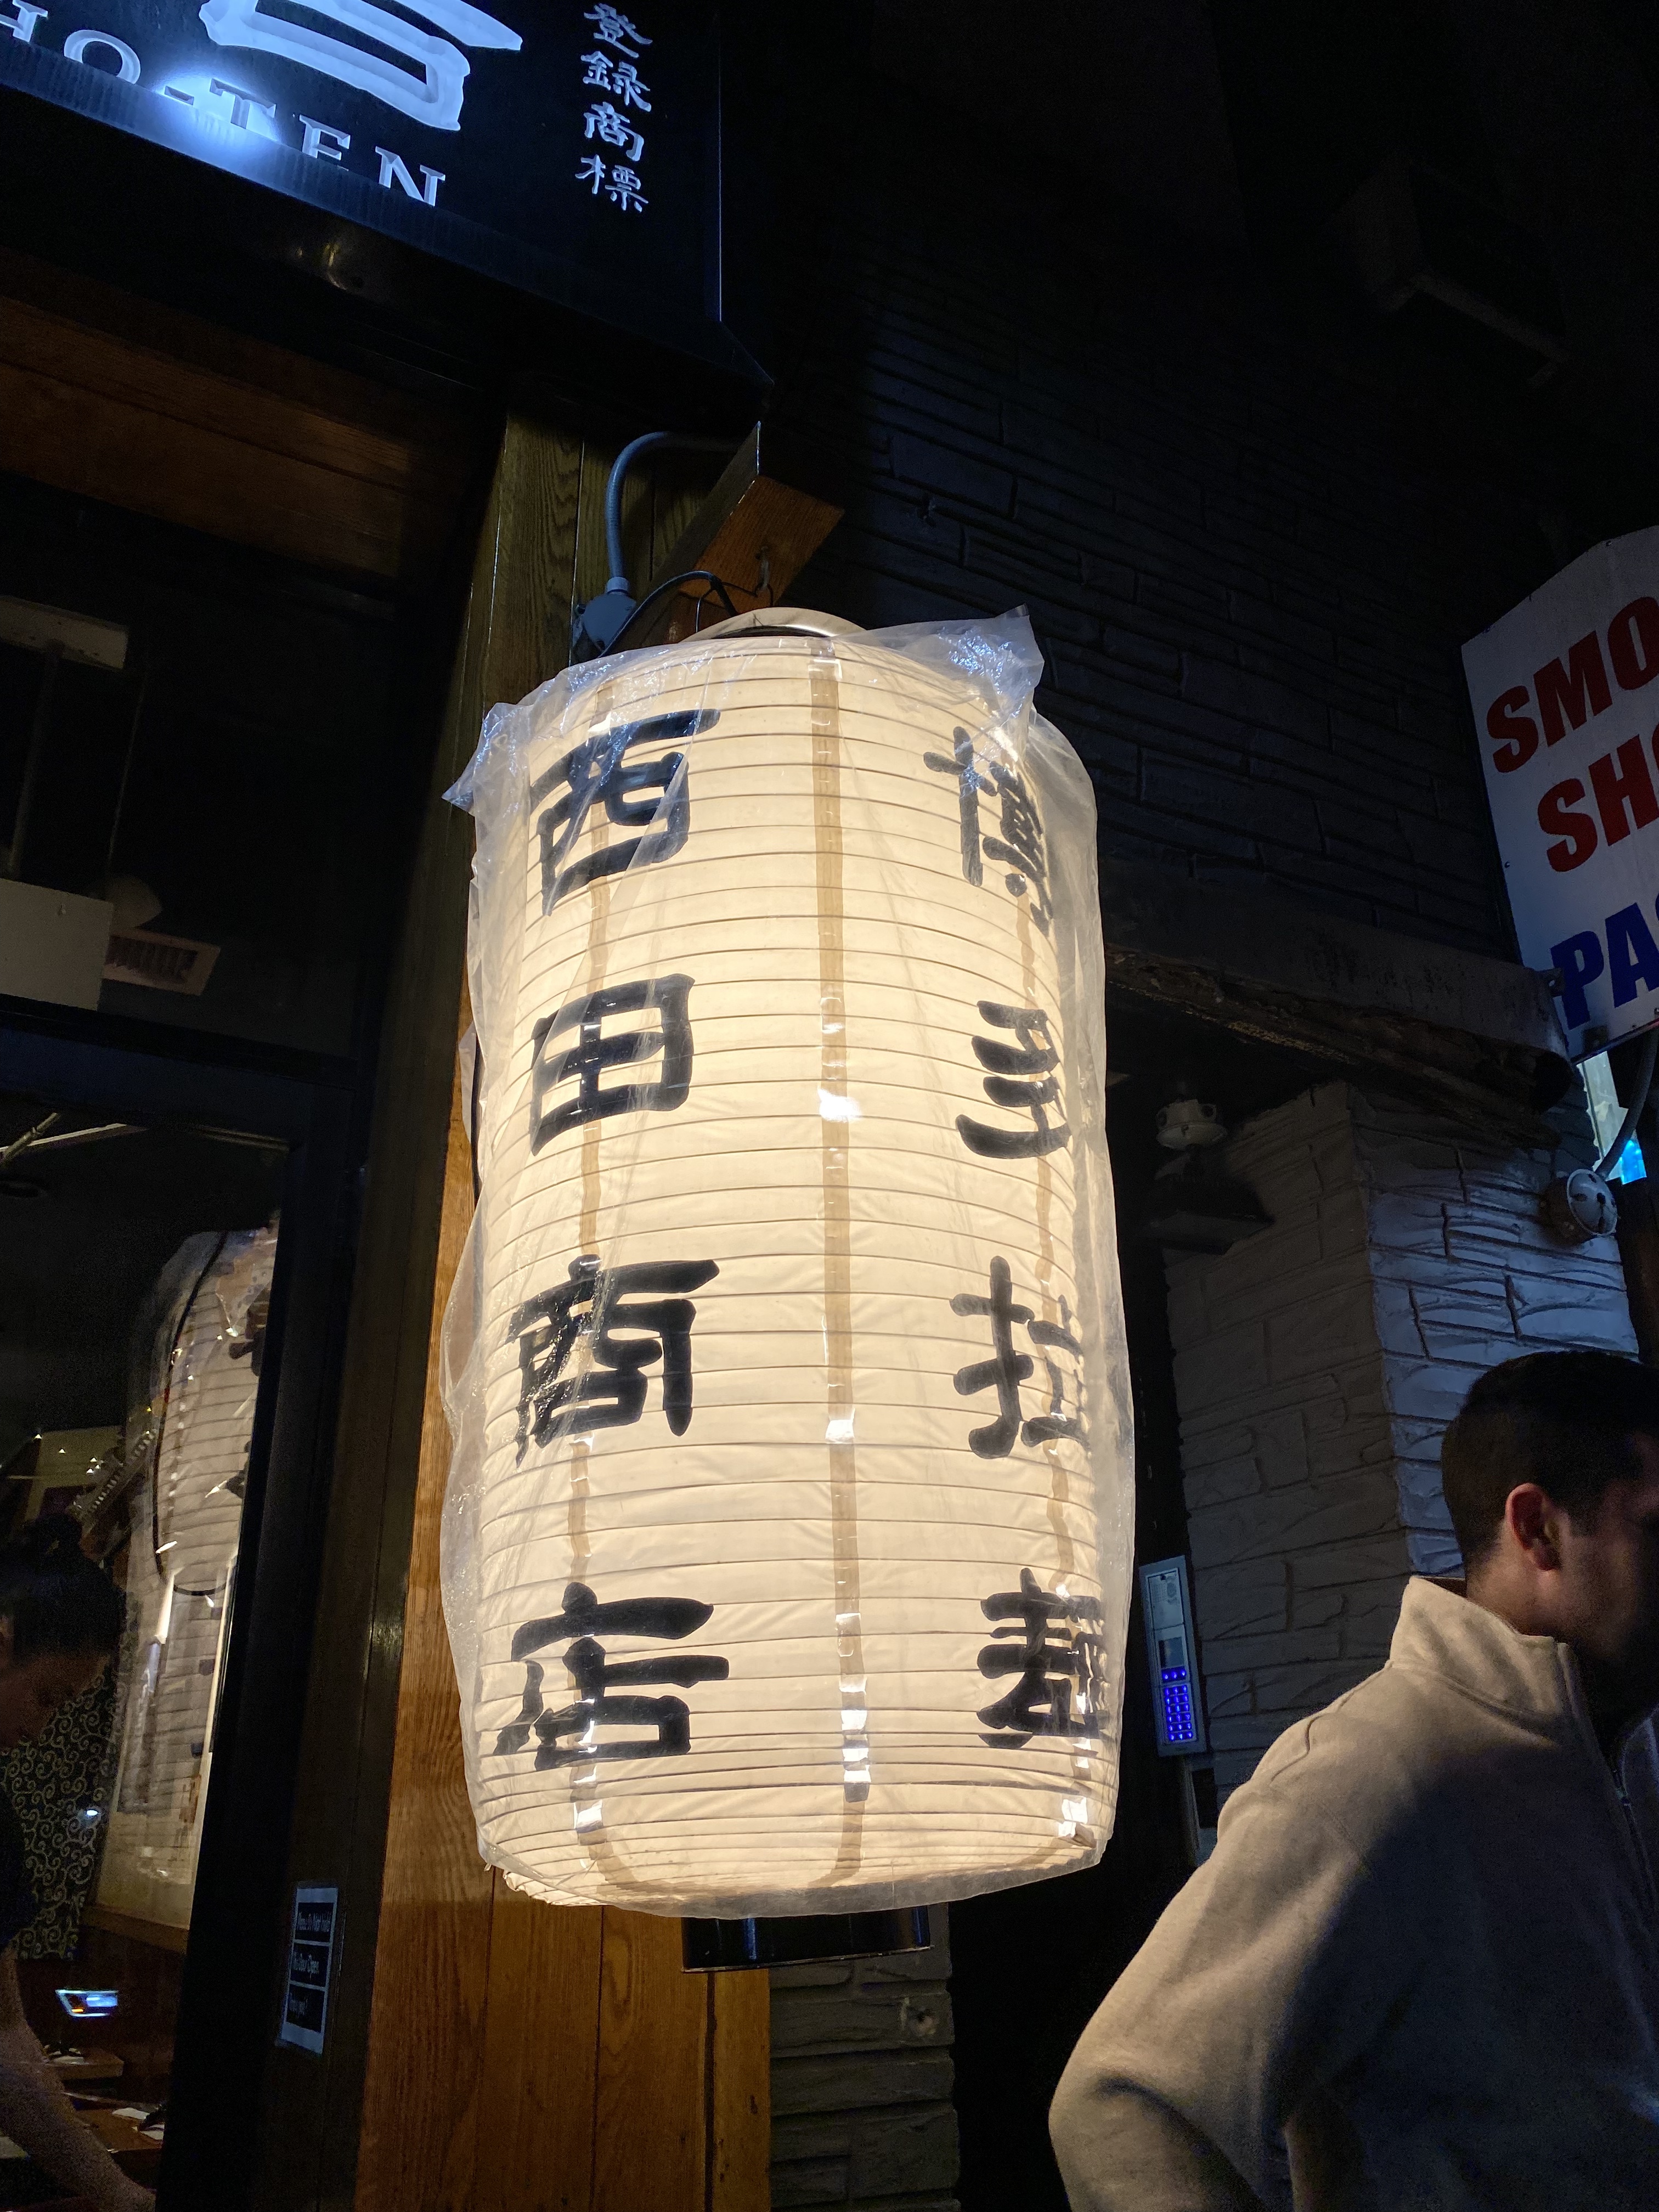 HO-TEN
登録商標
博多拉麺
西田商店
SMO
SH
PA